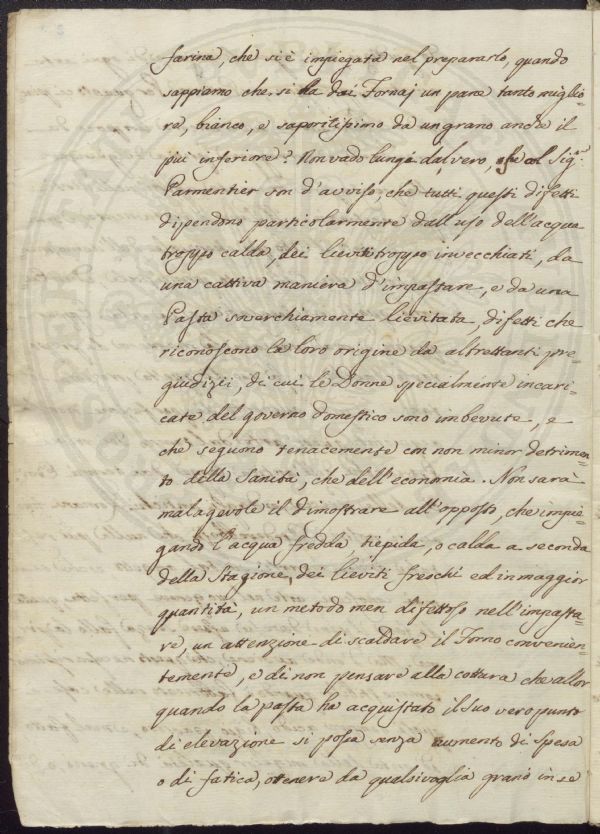 farina, che si è impiegata nel prepararlo, quando
sappiamo che si ha dai Fornaj un pane tanto miglio=
re, bianco, e saporitissimo da un grano anche il
più inferiore? Non vado lungi dal vero, se al Sig.r
Parmentier son d'avviso, che tutti questi difetti
dipendono particolarmente dall'uso dell'acqua
troppo calda, dei lieviti troppo invecchiati, da
una cattiva maniera d'impastare, e da una
Pasta soverchiamente lievitata, difetti che
riconoscono la loro origine da altrettanti pre=
giudizii, di cui le Donne specialmente incari=
cate del governo domestico sono imbevute, e
che seguono tenacemente con non minor detrimen=
to della Sanità, che dell'economia. Non sarà
malagevole il dimostrare all'opposto, che impie=
gando l'acqua fredda, tiepida, o calda a seconda
della Stagione, dei lieviti freschi ed in maggior
quantità, un metodo men difettoso nell'impasta=
re, un attenzione di scaldare il Forno convenien=
temente, e di non pensare alla cottura che allor
quando la pasta ha acquistato il suo vero punto
di elevazione si possa senza aumento di spesa
o di fatica, ottenere da qualsivoglia grano in se